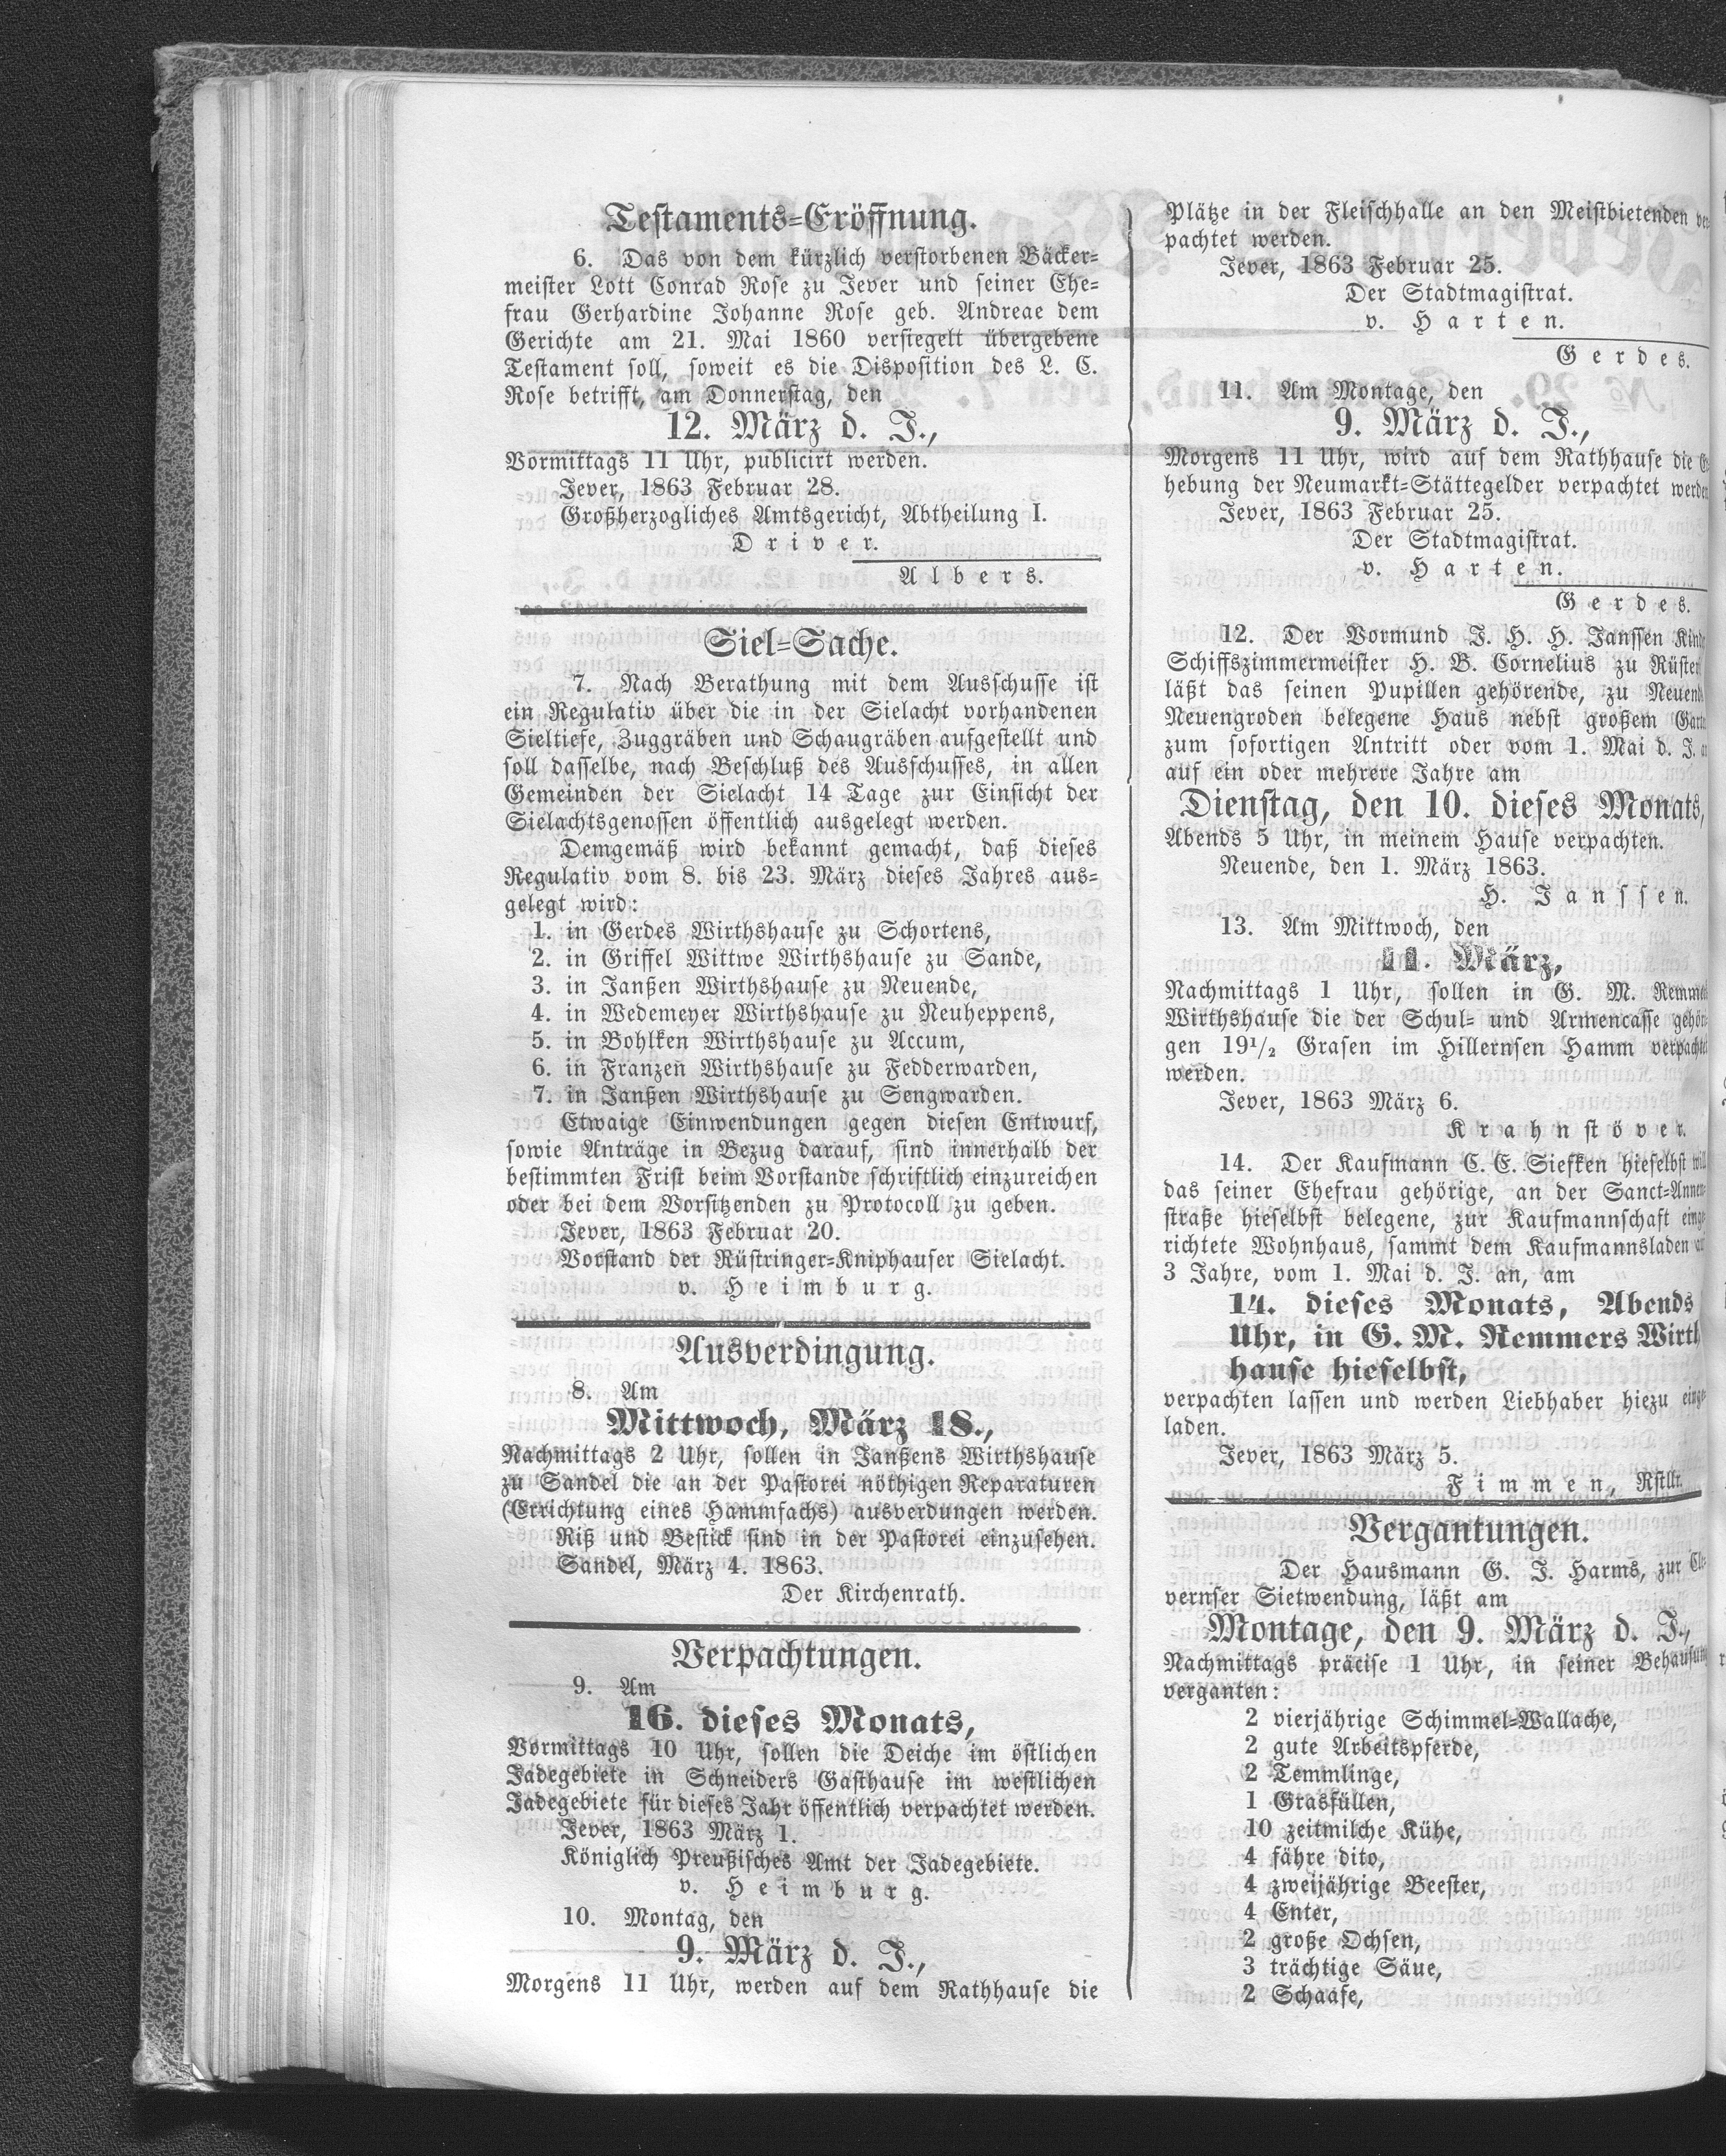 Testaments-Eröffnung.
6. Das von dem kürzlich verstorbenen Bäcker-
meister Lott Conrad Rose zu Jever und seiner Ehe-
frau Gerhardine Johanne Rose geb. Andreae dem
Gerichte am 21. Mai 1860 versiegelt übergebene
Testament soll, soweit es die Disposition des L. C.
Rose betrifft, am Donnerstag, den
12. März d. J.,
Vormittags 11 Uhr, publicirt werden.
Jever, 1863 Februar 28.
Großherzogliches Amtsgericht, Abtheilung I.
Driver.
Albers.
Siel-Sache.
7. Nach Berathung mit dem Ausschusse ist
ein Regulativ über die in der Sielacht vorhandenen
Sieltiefe, Zuggräben und Schaugräben aufgestellt und
soll dasselbe, nach Beschluß des Ausschusses, in allen
Gemeinden der Sielacht 14 Tage zur Einsicht der
Sielachtsgenossen öffentlich ausgelegt werden.
Demgemäß wird bekannt gemacht, daß dieses
Regulativ vom 8. bis 23. März dieses Jahres aus-
gelegt wird:
1. in Gerdes Wirthshause zu Schortens,
2. in Griffel Wittwe Wirthshause zu Sande,
3. in Janßen Wirthshause zu Neuende,
4. in Wedemeyer Wirthshause zu Neuheppens,
5. in Bohlken Wirthshause zu Accum,
6. in Franzen Wirthshause zu Fedderwarden,
7. in Janßen Wirthshause zu Sengwarden.
Etwaige Einwendungen gegen diesen Entwurf,
sowie Anträge in Bezug darauf, sind innerhalb der
bestimmten Frist beim Vorstande schriftlich einzureichen
oder bei dem Vorsitzenden zu Protocoll zu geben.
Jever, 1863 Februar 20.
Vorstand der Rüstringer-Kniphauser Sielacht.
v. Heimburg.
Ausverdingung.
8. Am
Mittwoch, März 18.,
Nachmittags 2 Uhr, sollen in Janßens Wirthshause
zu Sandel die an der Pastorei nöthigen Reparaturen
(Errichtung eines Hammfachs) ausverdungen werden.
Riß und Bestick sind in der Pastorei einzusehen.
Sandel, März 4. 1863.
Der Kirchenrath.
Verpachtungen.
9. Am
16. dieses Monats,
Vormittags 10 Uhr, sollen die Deiche im östlichen
Jadegebiete in Schneiders Gasthause im westlichen
Jadegebiete für dieses Jahr öffentlich verpachtet werden.
Jever, 1863 März 1.
Königlich Preußisches Amt der Jadegebiete.
v. Heimburg.
10. Montag, den
9. März d. J.,
Morgens 11 Uhr, werden auf dem Rathhause die
Plätze in der Fleischhalle an den Meistbietenden ver-
pachtet werden.
Jever, 1863 Februar 25.
Der Stadtmagistrat.
v. Harten.
Gerdes.
11. Am Montage, den
9. März d. J.,
Morgens 11 Uhr, wird auf dem Rathhause die
hebung der Neumarkt-Stättegelder verpachtet werden
Jever, 1863 Februar 25.
Der Stadtmagistrat.
v. Harten.
Gerdes.
12. Der Vormund J. H. H. Janssen
Schiffszimmermeister H. B. Cornelius zu
läßt das seinen Pupillen gehörende, zu
Neuengroden belegene Haus nebst großem
zum sofortigen Antritt oder vom 1. Mai d. J.
auf ein oder mehrere Jahre am
Dienstag, den 10. dieses Monats,
Abends 5 Uhr, in meinem Hause verpachten.
Neuende, den 1. März 1863.
H. Janssen.
13. Am Mittwoch, den
11. März,
Nachmittags 1 Uhr, sollen in G. M.
Wirthshause die der Schul- und Armencasse
gen 19 1/2 Grasen im Hillernsen Hamm
werden.
Jever, 1863 März 6.
Krahnstöver.
14. Der Kaufmann C. E. Siefken hieselbst
das seiner Ehefrau gehörige, an der Sanct-Annen-
straße hieselbst belegene, zur Kaufmannschaft
richtete Wohnhaus, sammt dem Kaufmannsladen
3 Jahre, vom 1. Mai d. J. an, am
14. dieses Monats, Abends
Uhr, in G. M. Remmers Wirth
hause hieselbst,
verpachten lassen und werden Liebhaber hiezu
laden.
Jever, 1863 März 5.
Fimmen, Rstllr.
Vergantungen.
Der Hausmann G. J. Harms, zur Cle-
vernser Sietwendung, läßt am
Montage, den 9. März d. J.,
Nachmittags präcise 1 Uhr, in seiner Behausung
verganten:
2 vierjährige Schimmel-Wallache,
2 gute Arbeitspferde,
2 Temmlinge,
1 Grasfüllen,
10 zeitmilche Kühe,
4 fähre dito,
4 zweijährige Beester,
4 Enter,
2 große Ochsen,
3 trächtige Säue,
2 Schaafe,